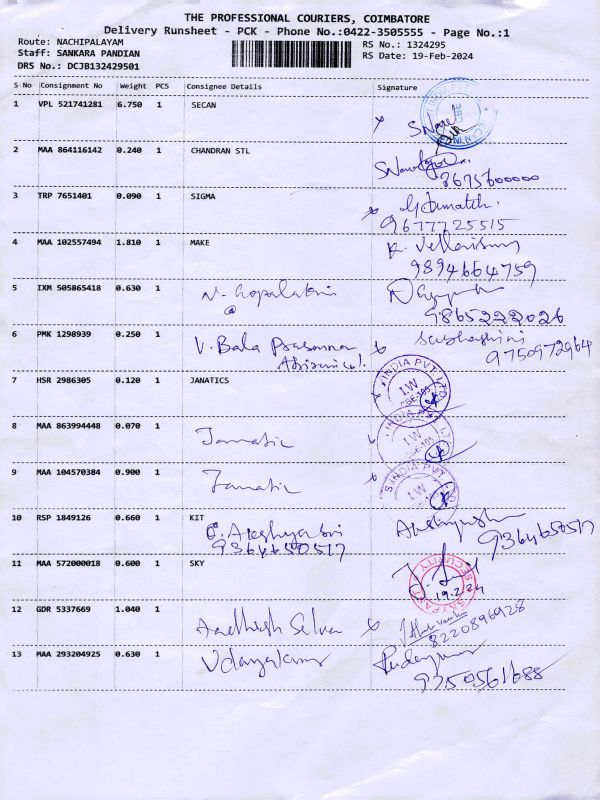 THE PROFESSIONAL COURIERS, COIMBATORE
Delivery Runsheet - PCK - Phone No.:0422-3505555 - Page No.:1
Route: NACHIPALAYAM RS No.: 1324295
Staff: SANKARA PANDIAN RS Date: 19-Feb-2024
DRS No.: DCJB132429501
S No Consignment No Weight PCS Consignee Details Signature
1 VPL 521741281 6.750 1 SECAN
2 MAA 864116142 0.240 1 CHANDRAN STL
3 TRP 7651401 0.090 1 SIGMA
9677725515
4 MAA 102557494 1.810 1 MAKE
9894664759
5 IXM 505865418 0.630 1 N. Gopalakrishnan
@ 9865222026
6 PMK 1298939 0.250 1 V. Bala Prasanna Subhashini
9750972964
7 HSR 2986305 0.120 1 JANATICS
INDIA PVT LTD
I.W
8 MAA 863994448 0.070 1 Janatic
I.W
9 MAA 104570384 0.900 1 Janatic
INDIA PVT
I.W
10 RSP 1849126 0.660 1 KIT
9364650517 9364650517
11 MAA 572000018 0.600 1 SKY
SECURITY
19.2.24
12 GDR 5337669 1.040 1
Aadhish Selvan
8220896928
13 MAA 293204925 0.630 1 Udayakumar
9350561688